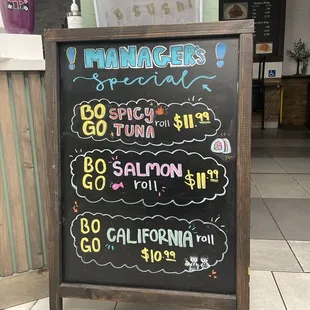 SUSHI
! MANAGERS !
Special
BOGO SPICY TUNA roll $11.99
BOGO SALMON roll $11.99
BOGO CALIFORNIA roll $10.99